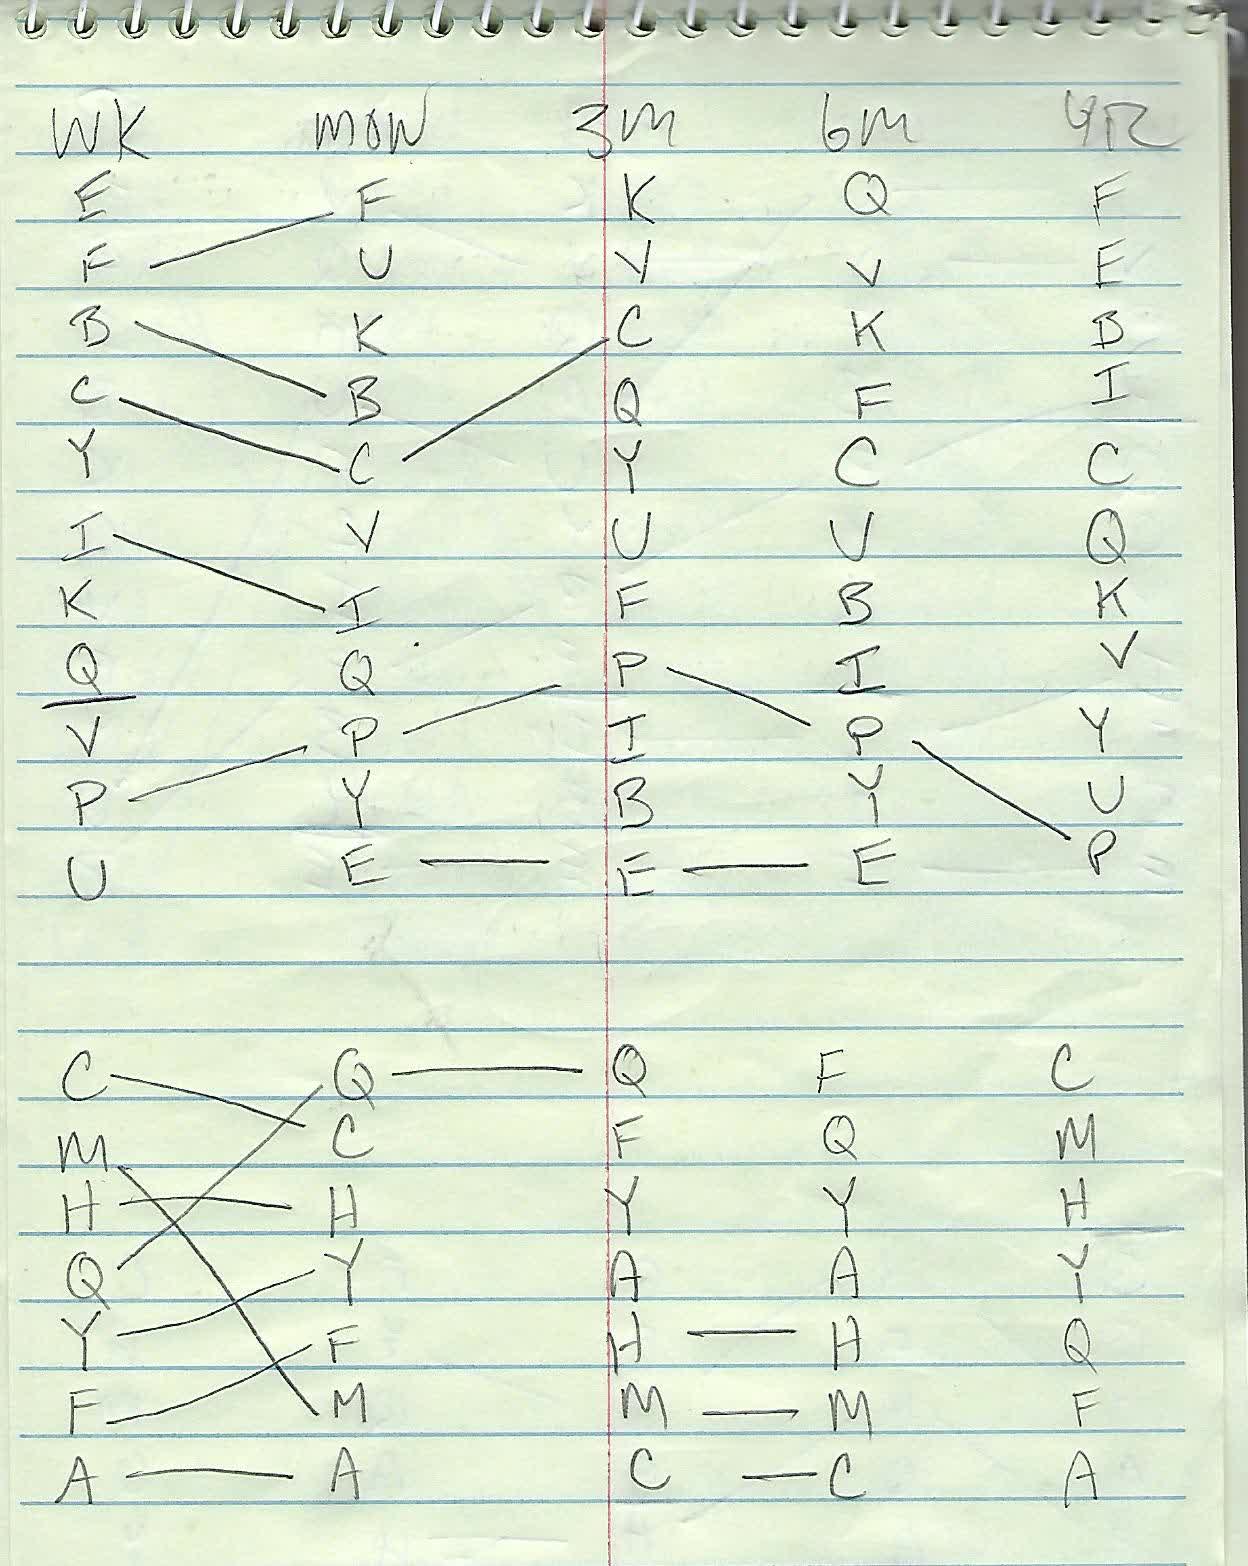 WK MON 3M 6M YR
E F K Q F
F U V V E
B K C K B
C B Q F I
Y C Y C C
I V U U Q
K I F B K
Q Q P I V
V P I P Y
P Y B Y U
U E E E P
C Q Q F C
M C F Q M
H H Y Y H
Q Y A A Y
Y F H H Q
F M M M F
A A C C A